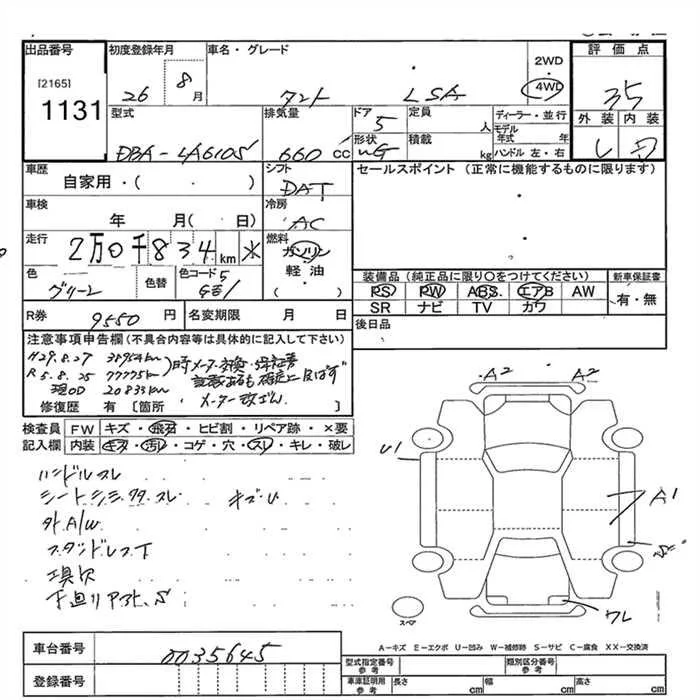 出品番号 初度登録年月 車名・グレード 2WD 評価点
[2165] 1131 26 8月 タント LSA 4WD 35
型式 排気量 ドア 定員 ディーラー・並行 外装 内装
DBA-LA610S 660cc 5 人 モデル年式 年
形状 積載 kg ハンドル 左・右
車歴 シフト セールスポイント(正常に機能するものに限ります)
自家用・( ・ ) DAT
車検 冷房
年 月( 日) AC
走行 燃料
2万0千834km ※ ガソリン
色 色替 色コード 軽油 装備品(純正品に限り○をつけてください) 新車保証書
グリーン ( ) PS PW ABS エアB AW 有・無
SR ナビ TV カワ
R券 9550円 名変期限 月 日 後日品
注意事項申告欄(不具合内容等は具体的に記入して下さい)
H29.8.27 38954km
R5.8.25 77775km
現OD 20833km メーター改ざん
修復歴 有 [箇所 ]
検査員 FW キズ・飛石・ヒビ割・リペア跡・×要
記入欄 内装 キズ・汚れ・コゲ・穴・スレ・キレ・破レ
ハンドルスレ
シートシミ、スレ キズ・U
外A/W
工具欠
A2 A2
U1
A1
S
ワレ
スペア
A-キズ E-エクボ U-凹み W-補修跡 S-サビ C-腐食 XX-交換済
車台番号 0035645 型式指定番号 参考 類別区分番号 参考
登録番号 車庫証明用 参考 長さ cm 幅 cm 高さ cm